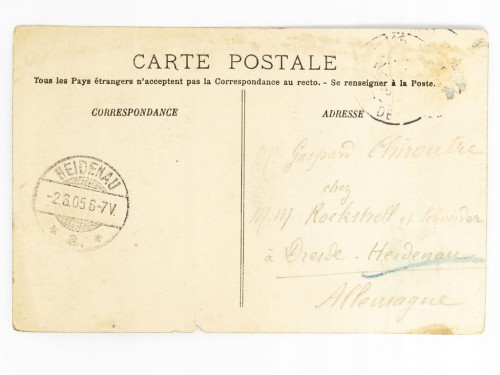 CARTE POSTALE
Tous les Pays étrangers n'acceptent pas la Correspondance au recto. - Se renseigner à la Poste.
CORRESPONDANCE
ADRESSE
HEIDENAU
-2.8.05 6-7V.
* a. *
DE
M. Gaspard Chiroutre
chez
M.M. Rockstroll et
à Dresde-Heidenau
Allemagne